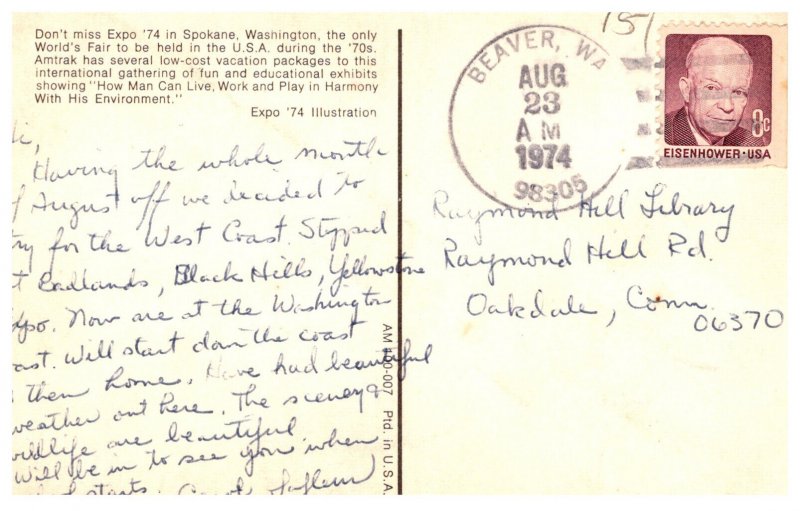 Don't miss Expo '74 in Spokane, Washington, the only
World's Fair to be held in the U.S.A. during the '70s.
Amtrak has several low-cost vacation packages to this
international gathering of fun and educational exhibits
showing "How Man Can Live, Work and Play in Harmony
With His Environment."
Expo '74 Illustration
Having the whole month
August off we decided to
try for the West Coast. Stopped
at Badlands, Black Hills, Yellowstone
Expo. Now are at the Washington
coast. Will start down the coast
then home. Have had beautiful
weather out here. The scenery &
wildlife are beautiful
Will be in to see you when
starts. Carol
AM 100-007 Ptd. in U.S.A.
151
BEAVER, WA
AUG
23
AM
1974
98305
8c
EISENHOWER·USA
Raymond Hill Library
Raymond Hill Rd.
Oakdale, Conn.
06370